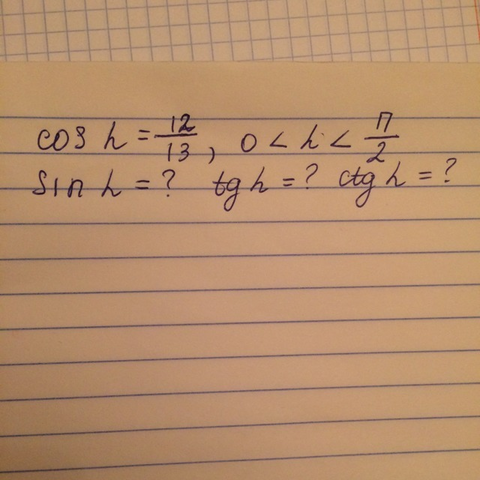 cos h = 12/13, 0 < h < π/2
sin h = ? tg h = ? ctg h = ?